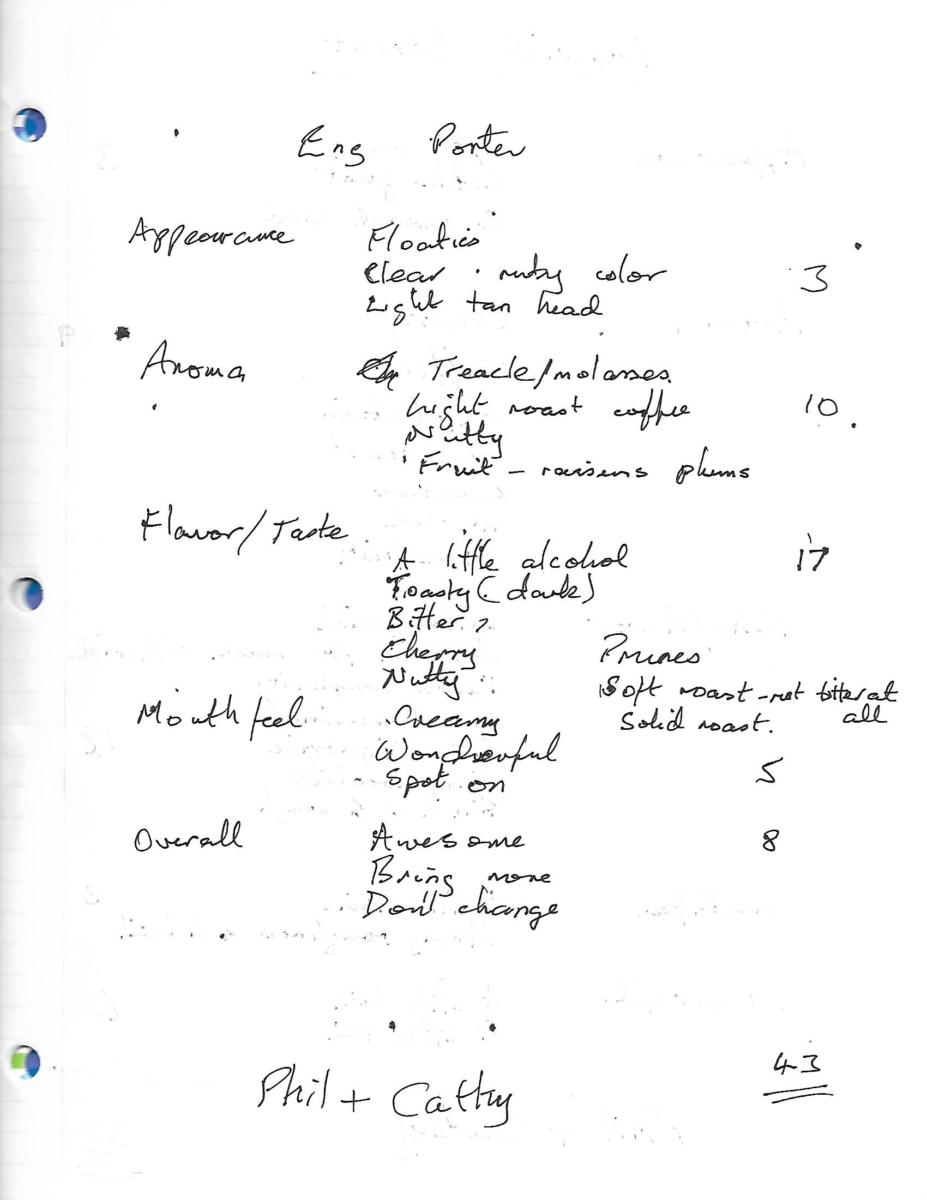 Eng Porter
Appearance Floaties
Clear . ruby color 3
Light tan head
Aroma Treacle/molasses.
Light roast coffee 10
Nutty
Fruit - raisens plums
Flavor/Taste
A little alcohol 17
Toasty (dark)
Bitter ?
Cherry Prunes
Nutty Soft roast - not bitter at all
Mouth feel Creamy Solid roast.
Wonderful
Spot on 5
Overall Awesome 8
Bring more
Don't change
43
Phil + Cathy